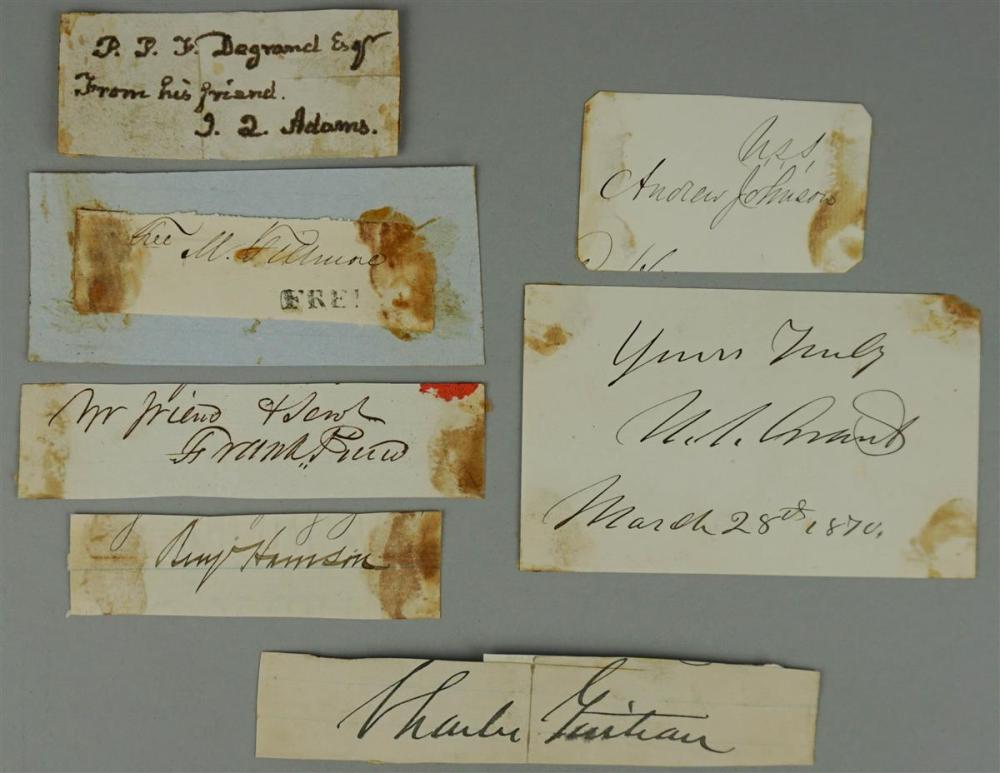 P. P. F. Degrand Esqr
From his friend.
J. Q. Adams.
Free
M. Fillmore
FREE
Yr friend & Servt
Frank. Pierce
Benj Harrison
U.S.S.
Andrew Johnson
Yours Truly
U. S. Grant
March 28th 1870.
Charles Guiteau